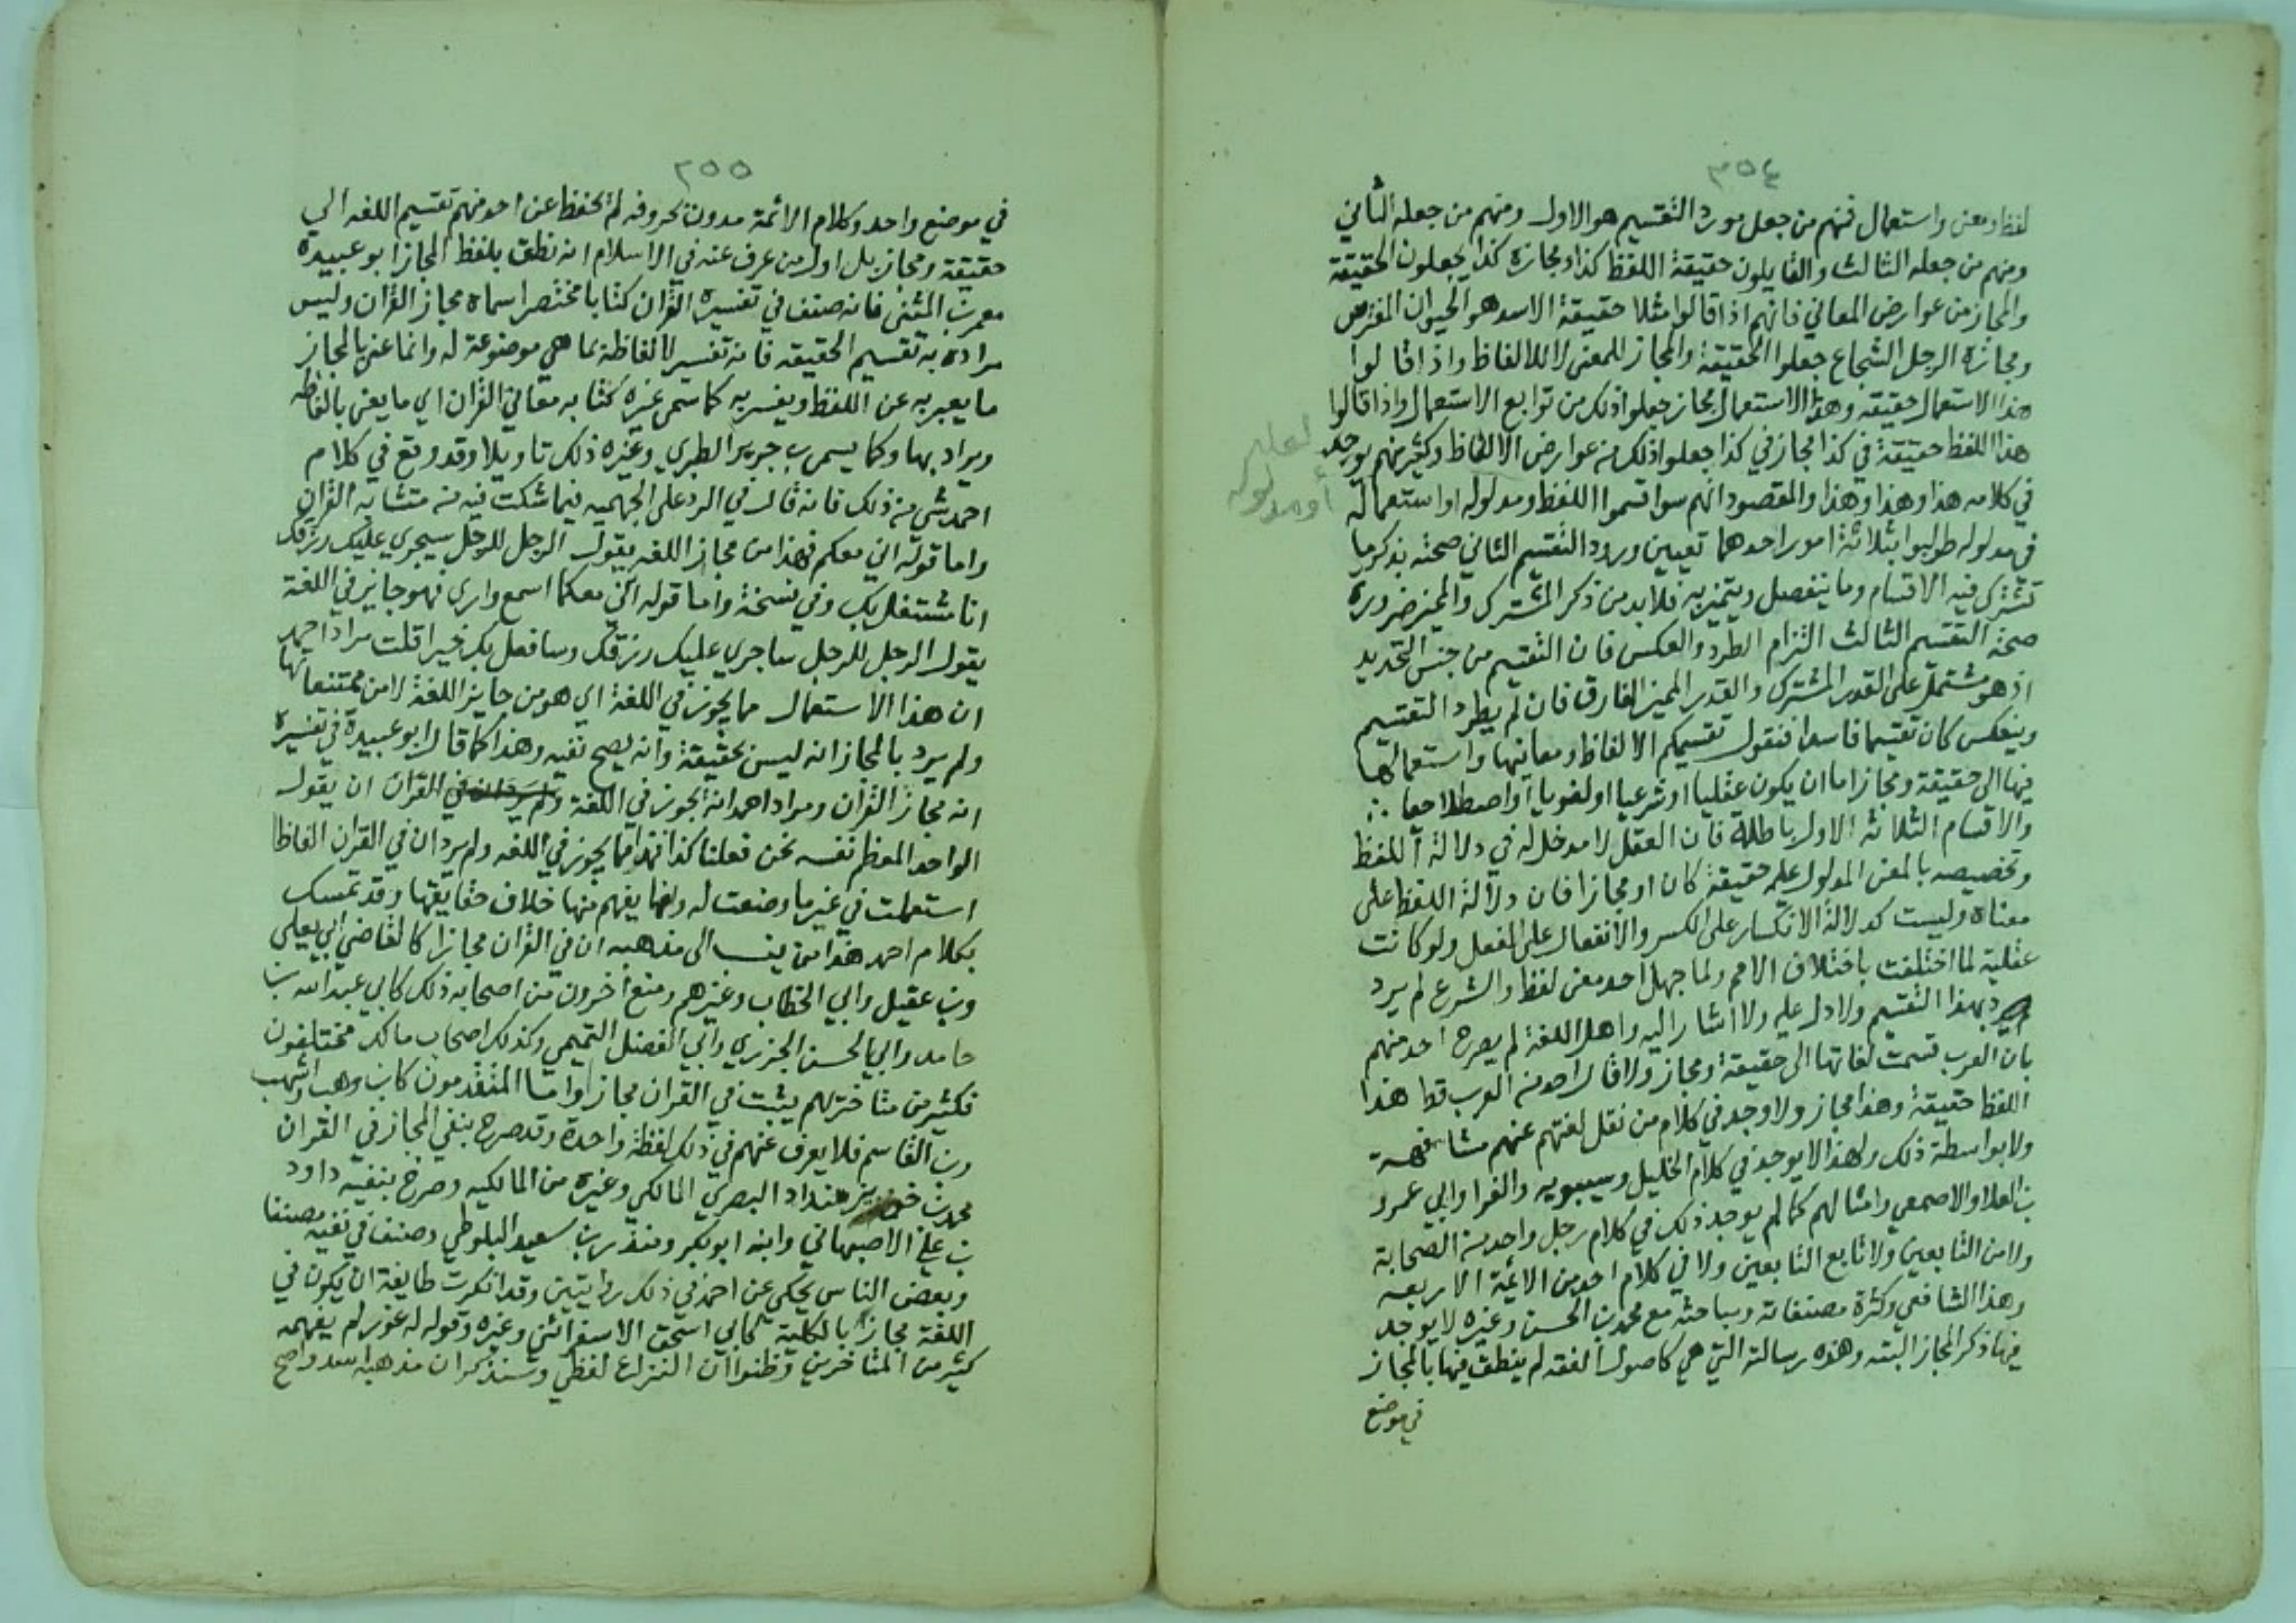 ٣٥٤
لفظ ومعنى واستعمال فمنهم من جعل مورد التقسيم هو الاول ومنهم من جعله الثاني
ومنهم من جعله الثالث والقايلون حقيقة اللفظ كذا ومجازه كذا يجعلون الحقيقة
والمجاز من عوارض المعاني فانهم اذا قالوا مثلا حقيقة الاسد هو الحيوان المفترس
ومجازه الرجل الشجاع جعلوا الحقيقة والمجاز للمعنى لا للالفاظ واذا قالوا
هذا الاستعمال حقيقه وهذا الاستعمال مجاز جعلوا ذلك من توابع الاستعمال واذا قالوا
هذا اللفظ حقيقة في كذا مجاز في كذا جعلوا ذلك من عوارض الالفاظ وكثير منهم يوجد
في كلامه هذا وهذا وهذا والمقصود انهم سوا قسموا اللفظ ومدلوله او استعماله
لعله
أو مدلوله
في مدلوله طولبوا بثلاثة امور احدهما تعيين ورود التقسيم الثاني صحته بذكر ما
تشترك فيه الاقسام وما ينفصل ويتميز به فلا بد من ذكر المشترك والمميز ضرورة
صحة التقسيم الثالث التزام الطرد والعكس فان التقسيم من جنس التحديد
اذ هو مشتمل على القدر المشترك والقدر المميز الفارق فان لم يطرد التقسيم
وينعكس كان تقسيما فاسدا فنقول تقسيمكم الالفاظ ومعانيها واستعمالها
فيها الى حقيقة ومجاز اما ان يكون عقليا او شرعيا او لغويا او اصطلاحيا
والاقسام الثلاثة الاول باطلة فان العقل لا مدخل له في دلالة اللفظ
وتخصيصه بالمعنى المدلول عليه حقيقة كان او مجازا فان دلالة اللفظ على
معناه وليست كدلالة الانكسار على الكسر والانفعال على الفعل ولو كانت
عقلية لما اختلفت باختلاف الامم ولما جهل احد معنى لفظ والشرع لم يرد
بهذا التقسيم ولا دل عليه ولا اشار اليه واهل اللغة لم يصرح احد منهم
بان العرب قسمت لغاتها الى حقيقة ومجاز ولا قال احد من العرب قط هذا
اللفظ حقيقة وهذا مجاز ولا وجد في كلام من نقل لغتهم عنهم مشافهة
ولا بواسطة ذلك ولهذا لا يوجد في كلام الخليل وسيبويه والفرا وابي عمرو
بن العلا والاصمعي وامثالهم كما لم يوجد ذلك في كلام رجل واحد من الصحابة
ولا من التابعين ولا تابع التابعين ولا في كلام احد من الايمة الاربعه
وهذا الشافعي وكثرة مصنفاته ومباحثه مع محمد بن الحسن وغيره لا يوجد
فيها ذكر المجاز البته وهذه رسالته التي هي كاصول الفقه لم ينطق فيها بالمجاز
في موضع
٢٥٥
في موضع واحد وكلام الائمة مدون بحروفه لم يحفظ عن احد منهم تقسيم اللغه الي
حقيقة ومجاز بل اول من عرف عنه في الاسلام انه نطق بلفظ المجاز ابو عبيدة
معمر بن المثنى فانه صنف في تفسير القران كتابا مختصرا سماه مجاز القران وليس
مراده به تقسيم الحقيقه فانه تفسير لالفاظه بما هي موضوعة له وانما عنى بالمجاز
ما يعبر به عن اللفظ ويفسر به كما سمى غيره كتابه معاني القران اي ما يعنى بالفاظه
ويراد بها وكما يسمى بن جرير الطبري وغيره ذلك تاويلا وقد وقع في كلام
احمد شي من ذلك فانه قال في الرد على الجهميه فيما شكت فيه من متشابه القران
واما قوله اني معكم فهذا من مجاز اللغه يقول الرجل للرجل سيجري عليك رزقك
انا مشتغل بك وفي نسخة واما قوله انني معكما اسمع وارى فهو جايز في اللغة
يقول الرجل للرجل ساجري عليك رزقك وسافعل بك خيرا قلت مراد احمد
ان هذا الاستعمال مما يجوز في اللغة اي هو من جايز اللغة لا من ممتنعاتها
ولم يرد بالمجاز انه ليس بحقيقة وانه يصح نفيه وهذا كما قال ابو عبيدة في تفسيره
انه مجاز القران ومراد احمد انه يجوز في اللغة ولم يرد ان في القران ان يقول
الواحد المعظم نفسه نحن فعلنا كذا فهذا مما يجوز في اللغه ولم يرد ان في القران الفاظا
استعملت في غير ما وضعت له وانها يفهم منها خلاف حقايقها وقد تمسك
بكلام احمد هذا من ينسب الى مذهبه ان في القران مجازا كالقاضي ابي يعلى
وبن عقيل وابي الخطاب وغيرهم ومنع آخرون من اصحابه ذلك كابي عبد الله بن
حامد وابي الحسن الجزري وابي الفضل التميمي وكذلك اصحاب مالك مختلفون
فكثير من متاخريهم يثبت في القران مجازا واما المتقدمون كابن وهب واشهب
وبن القاسم فلا يعرف عنهم في ذلك لفظة واحدة وقد صرح بنفي المجاز في القران
محمد بن خويز منداد البصري المالكي وغيره من المالكيه وصرح بنفيه داود
بن علي الاصبهاني وابنه ابو بكر ومنذر بن سعيد البلوطي وصنف في نفيه مصنفا
وبعض الناس يحكي عن احمد في ذلك روايتين وقد انكرت طايفة ان يكون في
اللغة مجاز بالكلية كابي اسحق الاسفرائني وغيره وقوله له غور لم يفهمه
كثير من المتاخرين وظنوا ان النزاع لفظي وسنذكر ان مذهبه اسد واصح